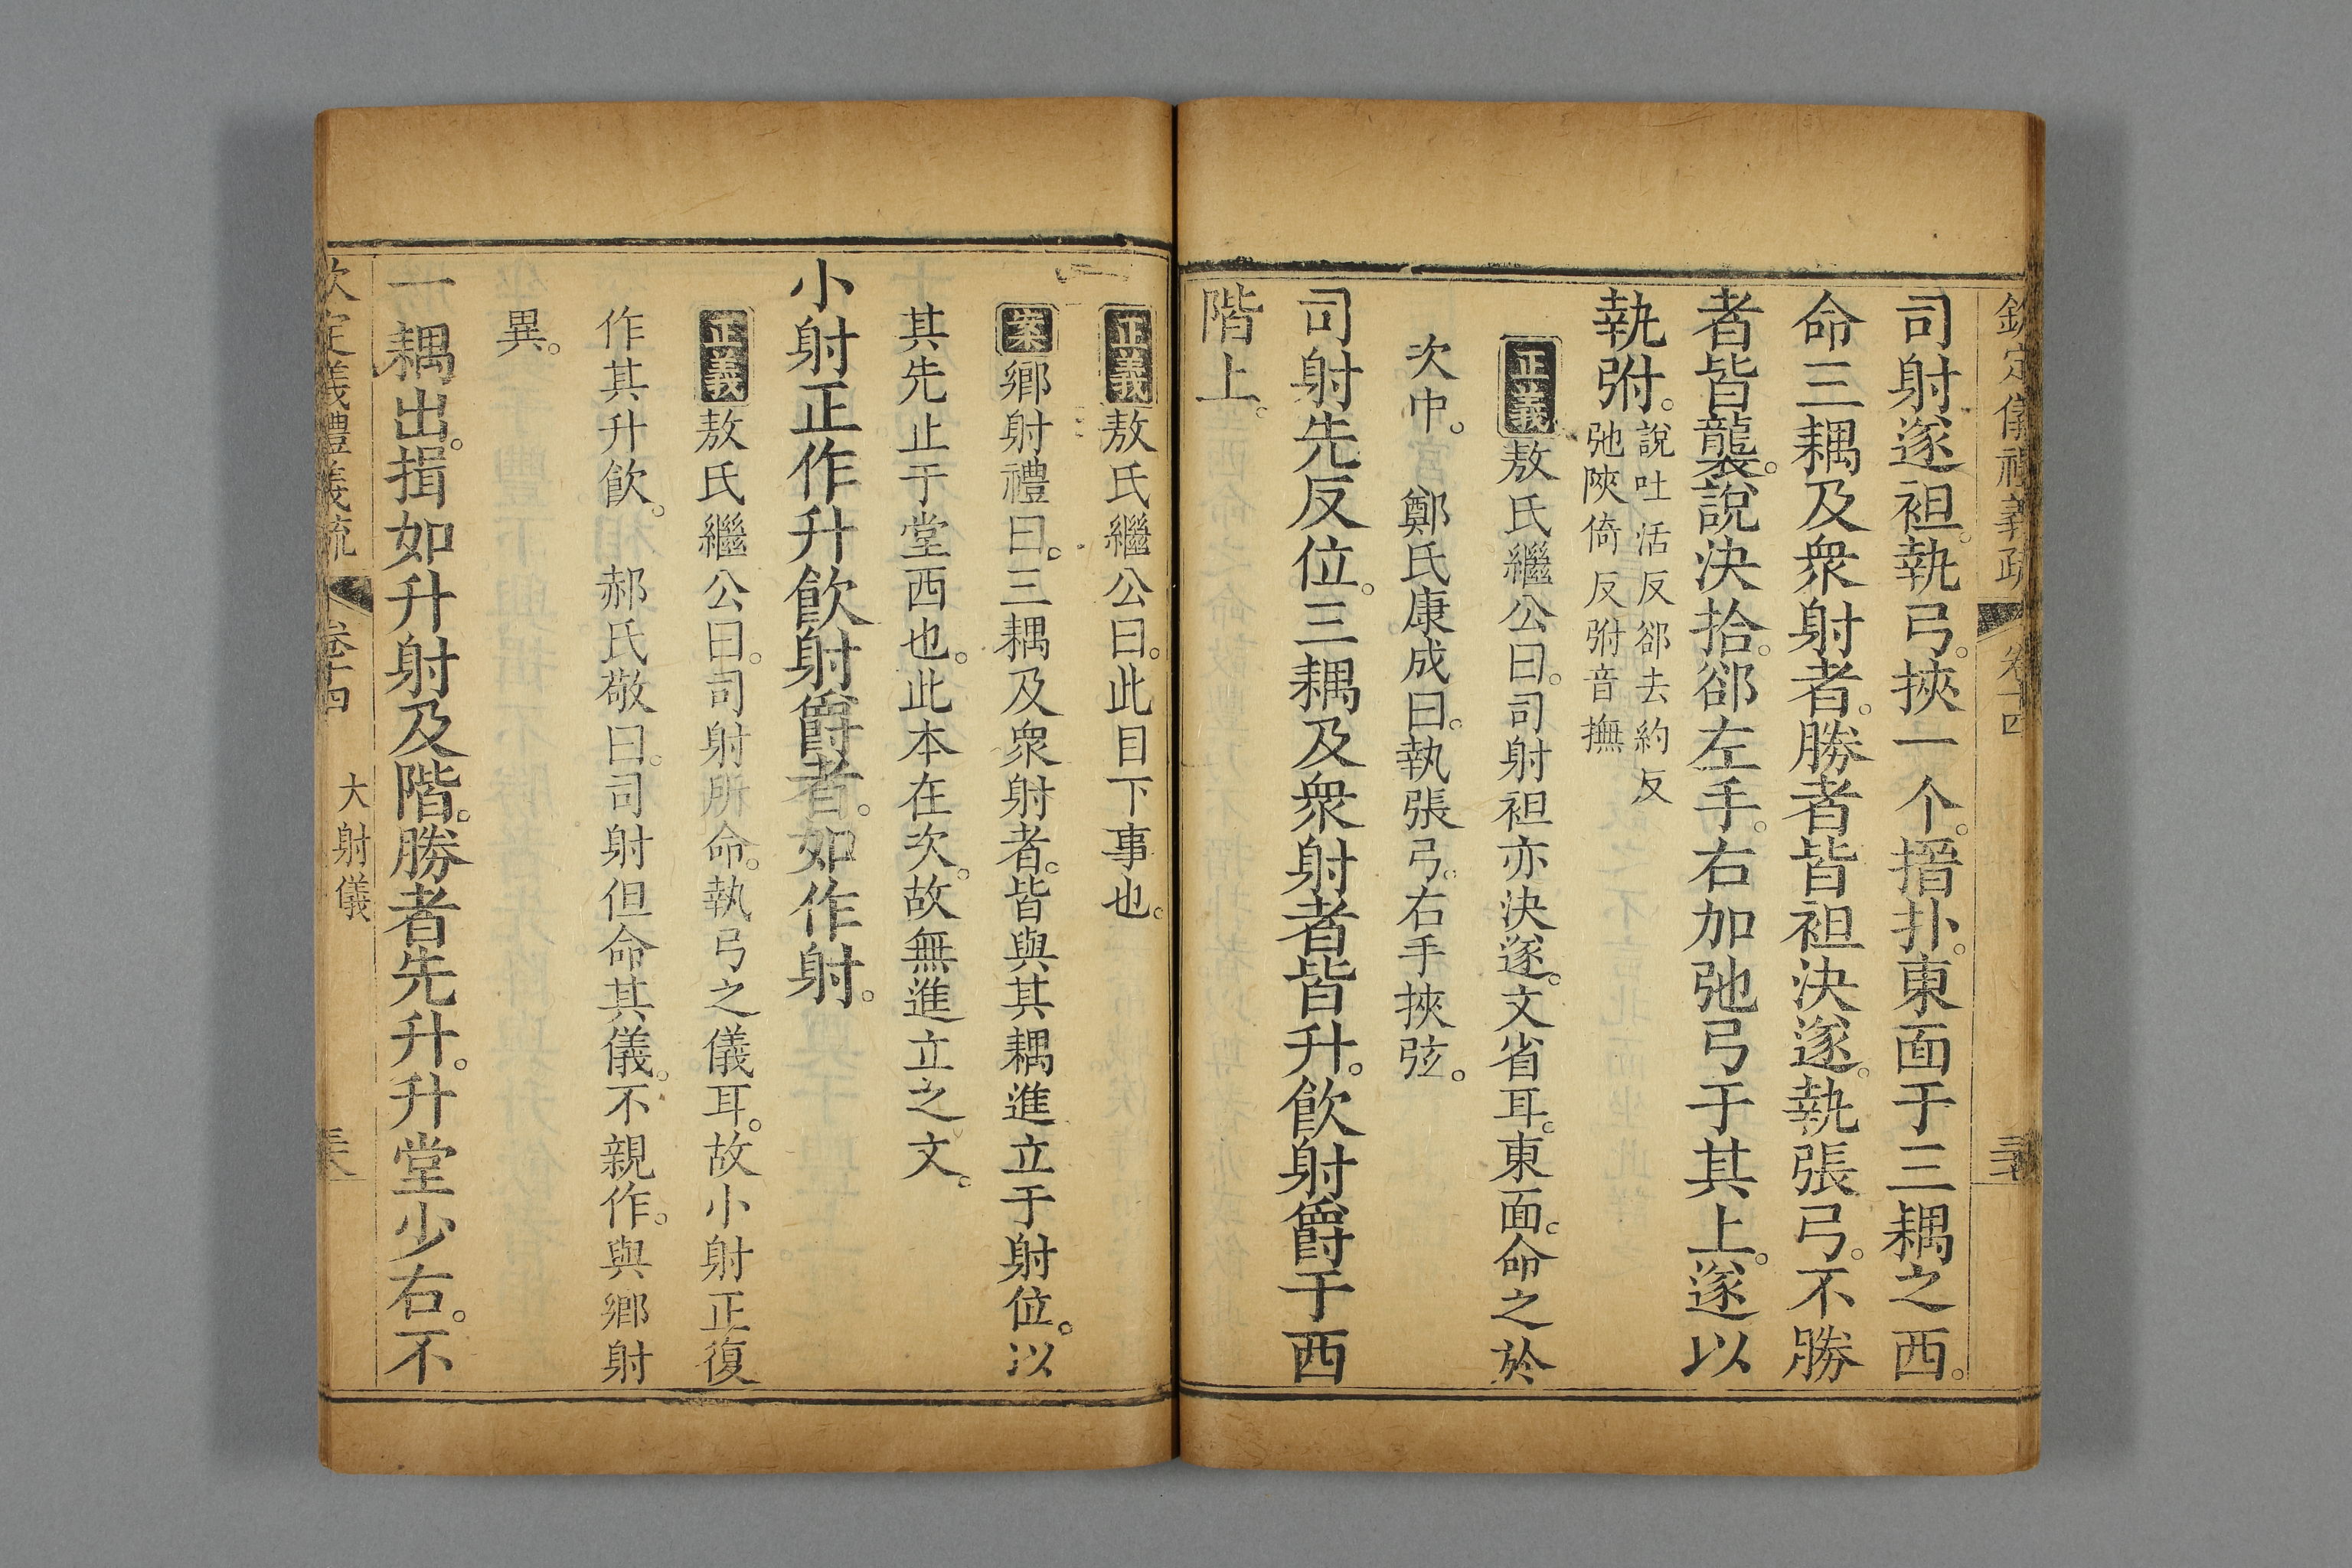 欽定儀禮義疏 卷十四
司射遂袒。執弓。挾一个。搢扑。東面于三耦之西。
命三耦及衆射者。勝者皆袒決遂。執張弓。不勝
者皆襲。說決拾。郤左手。右加弛弓于其上。遂以
執弣。
說吐活反郤去約反
弛陝倚反弣音撫
正義敖氏繼公曰。司射袒亦決遂。文省耳。東面。命之於
次中。 鄭氏康成曰。執張弓。右手挾弦。
司射先反位。三耦及衆射者皆升。飮射爵于西
階上。
正義敖氏繼公曰。此目下事也。
案鄉射禮曰。三耦及衆射者。皆與其耦進立于射位。以
其先止于堂西也。此本在次。故無進立之文。
小射正作升飮射爵者。如作射。
正義敖氏繼公曰。司射所命。執弓之儀耳。故小射正復
作其升飮。 郝氏敬曰。司射但命其儀。不親作。與鄉射
異。
一耦出。揖如升射及階。勝者先升。升堂少右。不
欽定儀禮義疏 卷十四 大射儀